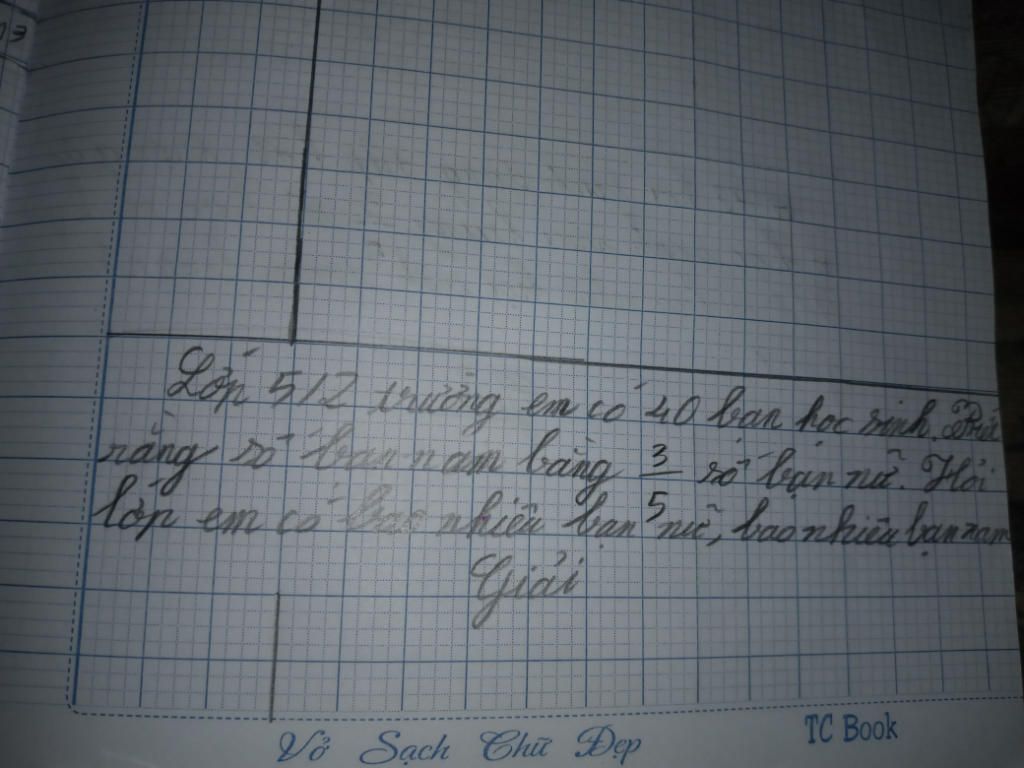 Lớp 5/2 trường em có 40 bạn học sinh. Biết
rằng số bạn nam bằng 3/5 số bạn nữ. Hỏi
lớp em có bao nhiêu bạn nữ, bao nhiêu bạn nam
Giải
Vở Sạch Chữ Đẹp
TC Book